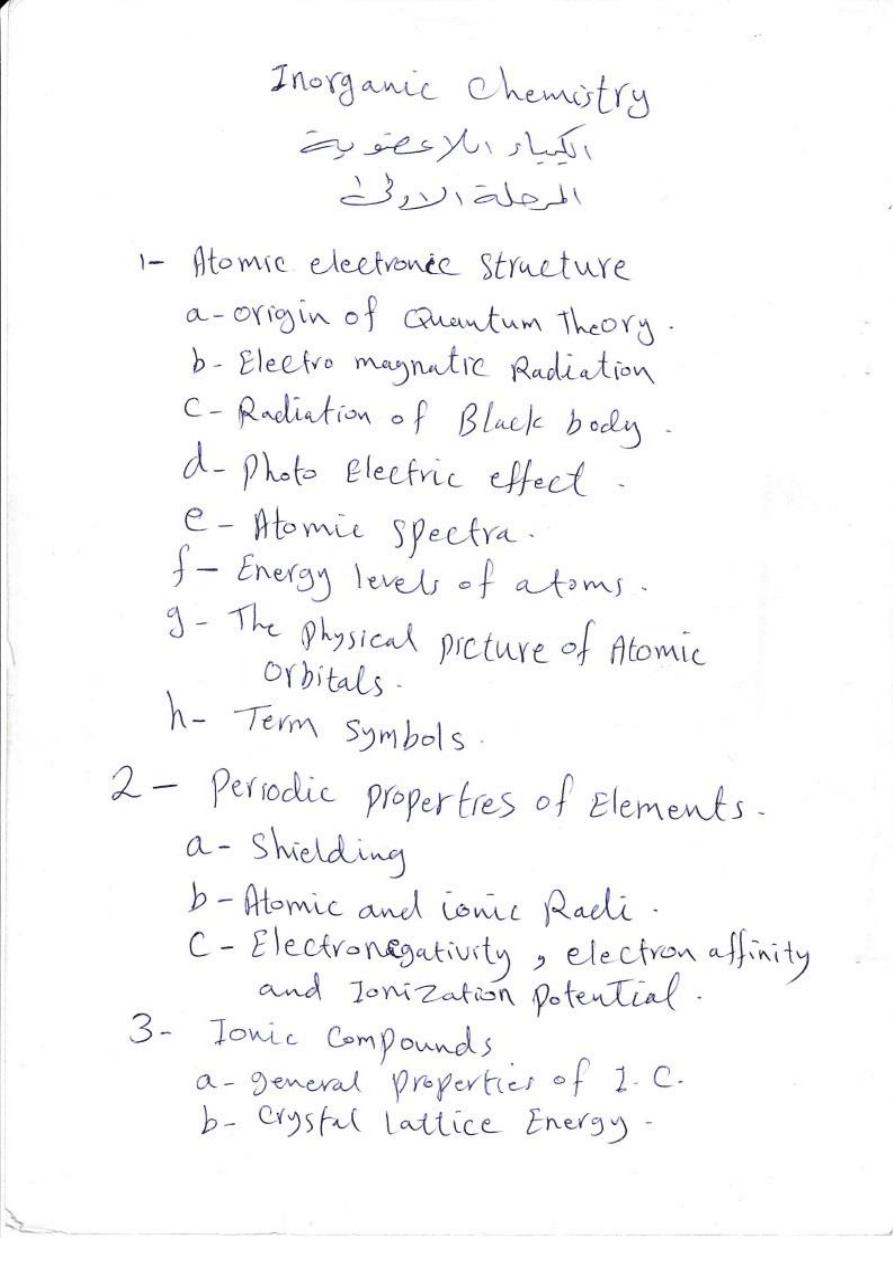 Inorganic Chemistry
الكيمياء اللاعضوية
المرحلة الاولى
1- Atomic electronic structure
a- origin of Quantum Theory.
b- Electro magnatic Radiation
C- Radiation of Black body.
d- Photo Electric effect.
e- Atomic spectra.
f- Energy levels of atoms.
g- The physical picture of Atomic
orbitals.
h- Term symbols.
2- Periodic properties of Elements.
a- Shielding
b- Atomic and ionic Radi.
C- Electronegativity, electron affinity
and Ionization potential.
3- Ionic Compounds
a- general properties of I.C.
b- Crystal lattice Energy-